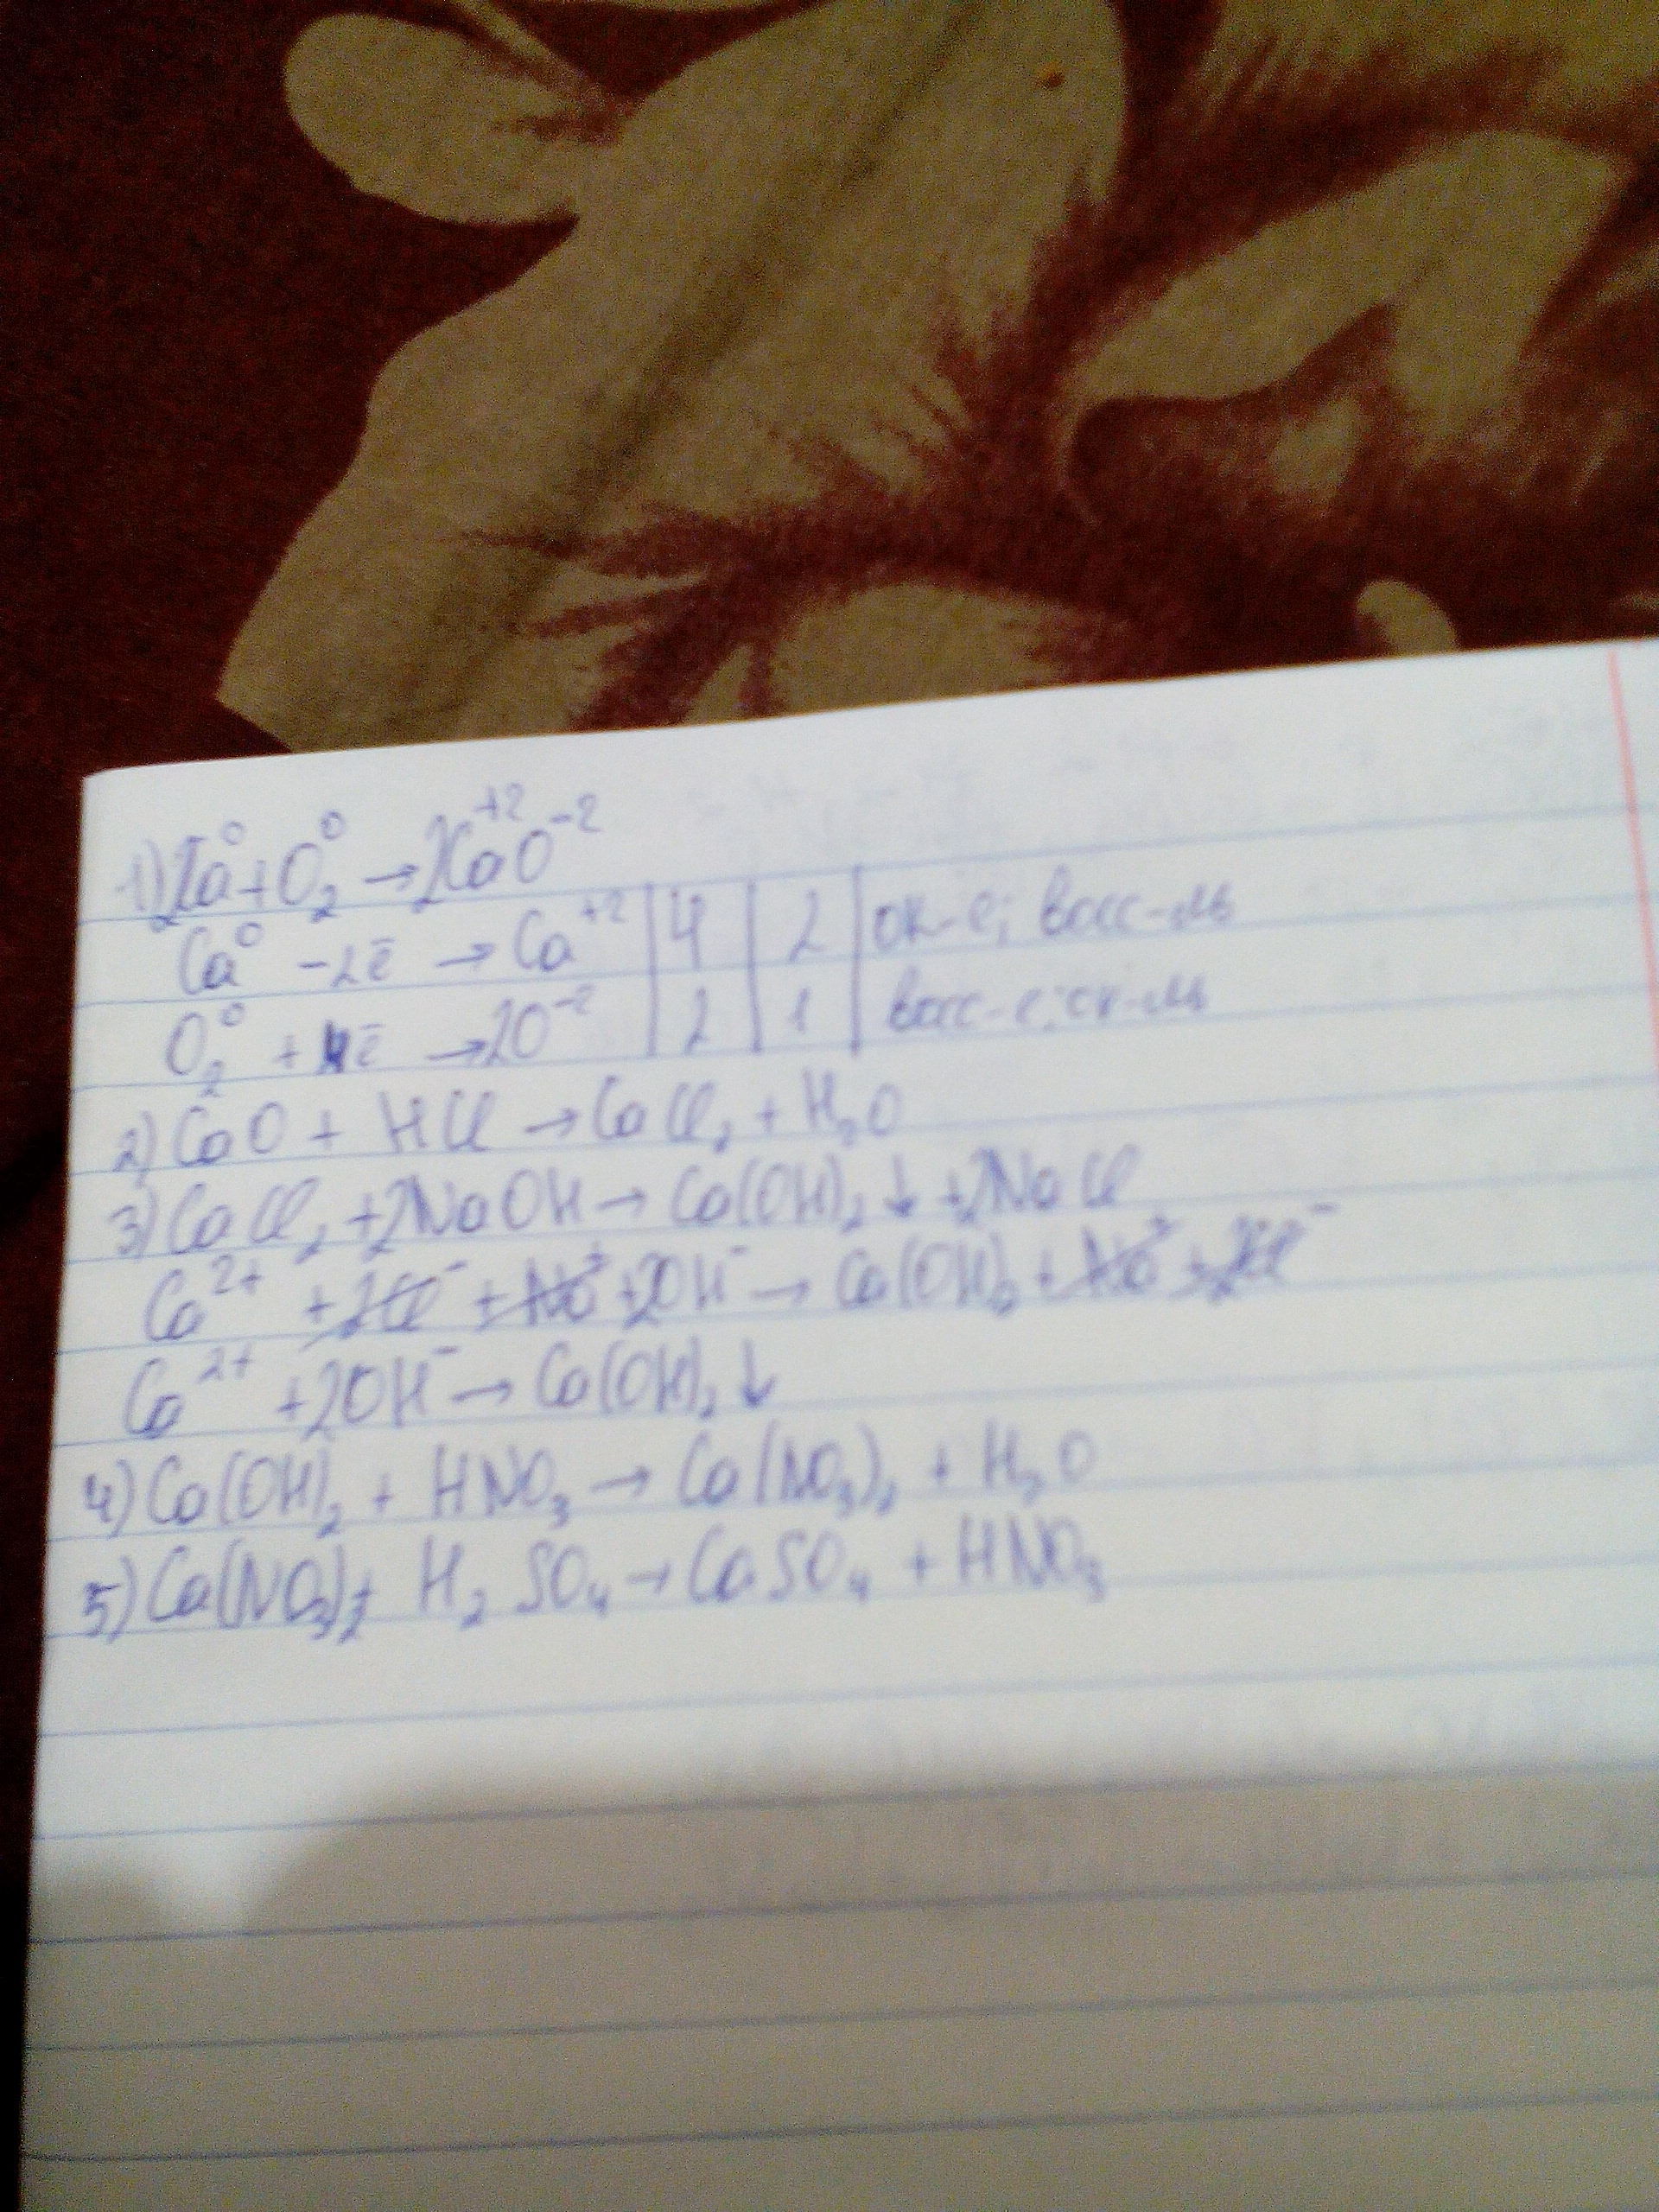 1) 2Ca⁰ + O₂⁰ → 2Ca⁺²O⁻²
Ca⁰ - 2ē → Ca⁺² | 4 | 2 | ок-е; восс-ль
O₂⁰ + 4ē → 2O⁻² | 2 | 1 | восс-е; ок-ль
2) CaO + HCl → CaCl₂ + H₂O
3) CaCl₂ + 2NaOH → Ca(OH)₂↓ + 2NaCl
Ca²⁺ + 2Cl⁻ + Na⁺ + 2OH⁻ → Ca(OH)₂ + Na⁺ + 2Cl⁻
Ca²⁺ + 2OH⁻ → Ca(OH)₂↓
4) Ca(OH)₂ + HNO₃ → Ca(NO₃)₂ + H₂O
5) Ca(NO₃)₂ + H₂SO₄ → CaSO₄ + HNO₃